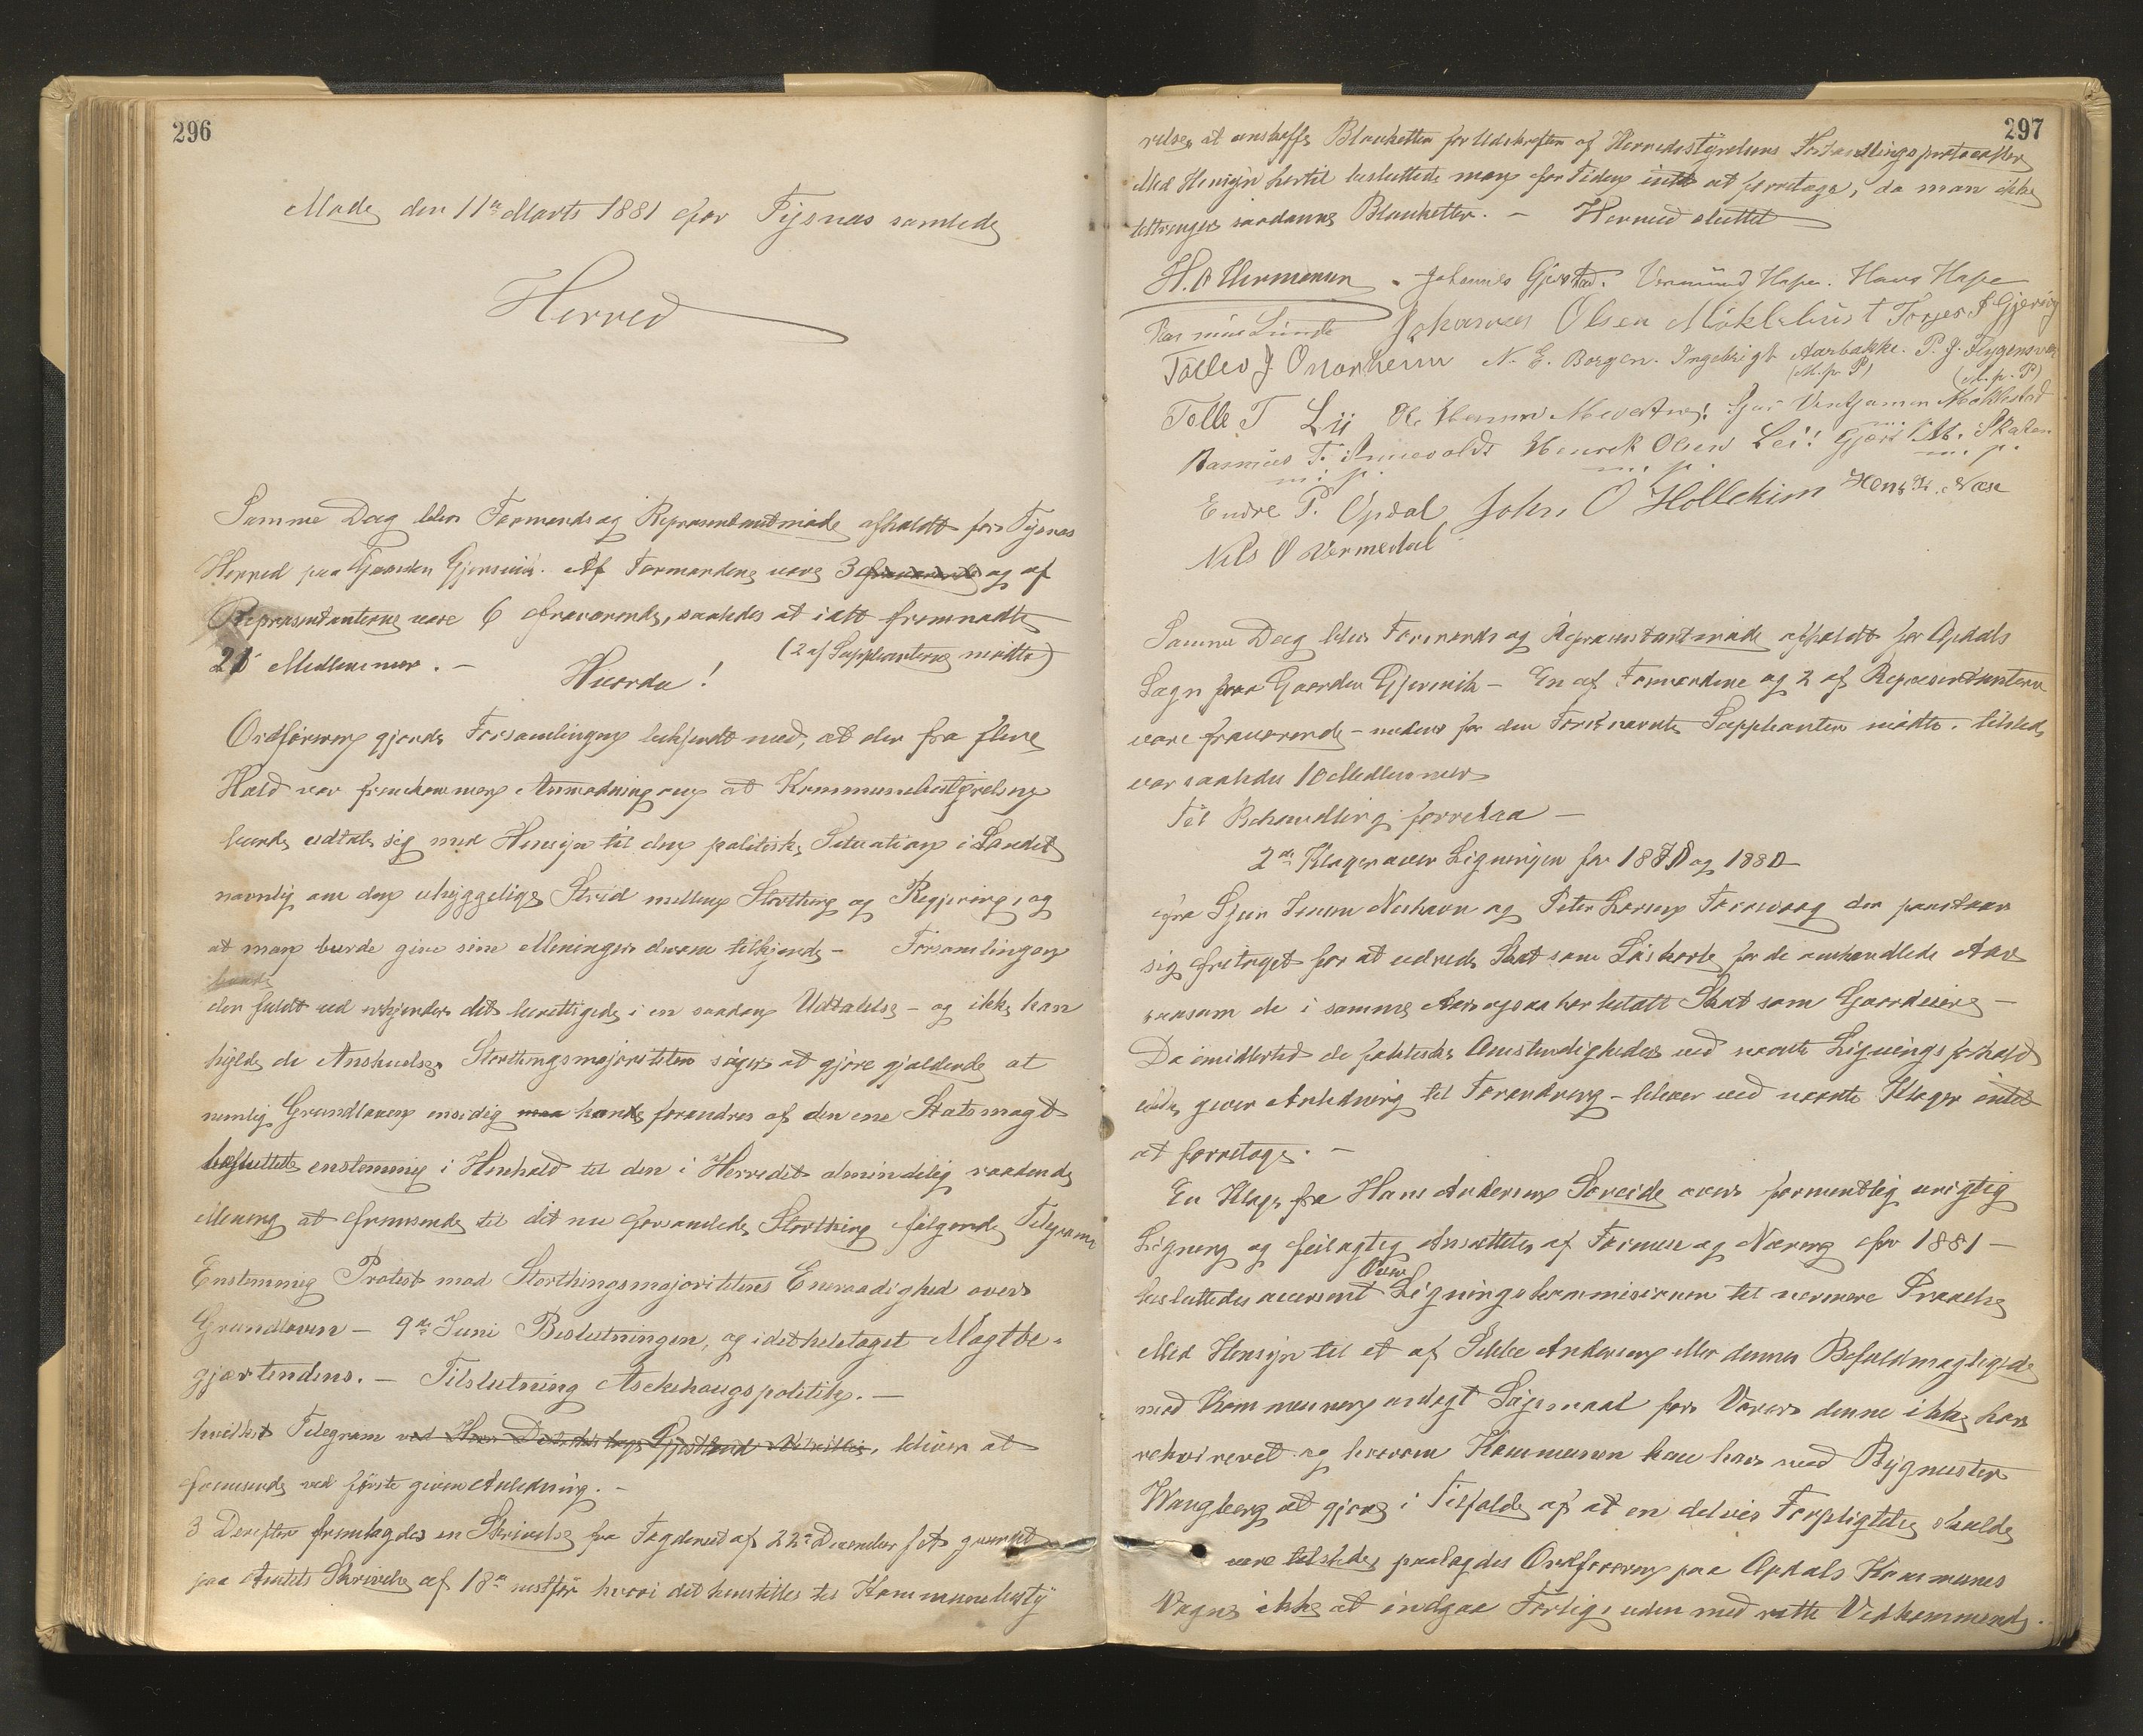 296
Møde den 11te Marts 1881 for Tysnæs samlede
Herred
Samme Dag blev Formands og Repræsentantmøde afholdt for Tysnæs
Herred paa Gaarden Gjersvik. Af Formændene vare 3 fraværende og af
Repræsentanterne vare 6 fraværende, saaledes at ialt fremmødte
21 Medlemmer. – (2 af Suppleanterne mødte)
Hvorda!
Ordføreren gjorde Forsamlingen bekjendt med, at der fra flere
Hold var fremkommen Anmodning om at Kommunebestyrelsen
burde udtale sig med Hensyn til den politiske Situation i Landet
navnlig om den uhyggelige Strid mellem Storthing og Regjering, og
at man burde give sine Meninger derom tilkjende – Forsamlingen
der fuldt ud erkjender det berettigede i en saadan Udtalelse – og ikke kan
hylde de Anskuelser Storthingsmajoriteten søger at gjøre gjældende at
nemlig Grundloven ensidig maa kunde forandres af den ene Statsmagt
besluttede enstemmig i Henhold til den i Herredet almindelig raadende
Mening at fremsende til det nu forsamlede Storthing følgende Telegram
Enstemmig Protest mod Storthingsmajoritetens Eneraadighed over
Grundloven – 9de Juni Beslutningen, og idetheletaget Magtbe-
gjærtendens. – Tilslutning Aschehougs politik. –
hvilket Telegram ved Herr Gjestland bliver at
fremsende ved første given Anledning. –
3 Derefter fremlagdes en Skrivelse fra Fogderiet af 22de December f A grundet
paa Amtets Skrivelse af 18de næstfør hvori det henstilles til Kommunebesty
297
relsen at anskaffe Blanketter for Udskriften af Herredsstyrelsens Forhandlingsprotocoller
Med Hensyn hertil besluttede man for Tiden intet at foretage, da man ikke
tiltrenger saadanne Blanketter. – Hermed sluttet
H. O Hermansen . Johannes Gjerstad. Vermund Hope. Hans Hope
Rasmus Lunde Johannes Olsen Møklebust Torjes S Gjersvig
Tollev J Onarheim N. E. Borgen. Ingebrigt Aarbakke. P. J. Flygansvær
(M. p. P) (M. p. P)
Tolle T Lii Sjur Møklestad
Rasmus T. Henrik Olsen Lei! Gjert M. Skaten
m. p. m. p. m. p.
Endre P. Opdal John O Hollekim Hans Næse
Nils O Vermedal
Samme Dag blev Formands og Repræsentantmøde afholdt for Opdals
Sogn paa Gaarden Gjersvik – En af Formændene og 2 af Repræsentanterne
vare fraværende – medens for den Førstnævnte Suppleanten mødte. tilstede
var saaledes 10 Medlemmer
Til Behandling foretaa –
2de Klager over Ligningen for 1879 og 1880
fra Sjur Neshavn og Peter Larsen Færavaag der paastaar
sig fritaget for at udrede Skat som Løskarle for de omhandlede Aar
saasom de i samme Aar ogsaa har betalt Skat som Gaardeiere –
Da imidlertid de faktiske Omstendigheder ved nævnte Ligningsforhold
ikke giver Anledning til Forandring – bliver ved nævnte Klager intet
at foretage. –
En Klage fra Hans Andersen Soreide over formentlig urigtig
Ligning og feilagtig Ansættelse af Formue og Næring for 1881 –
besluttedes oversendt Over Ligningskommissionen til nermere Prøvelse
Med Hensyn til et af Sekke Andersen eller dennes Befuldmægtigede
mod Kommunen anlagt Søgsmaal for Varer denne ikke har
rekvireret og hvorom Kommunen kun har med Bygmester
Wangberg at gjøre i Tilfælde af at en delvis Forpligtelse skulde
være tilstede, paalagdes Ordføreren paa Opdals Kommunes
Vegne ikke at indgaa Forlig, uden med rette Vedkommende.